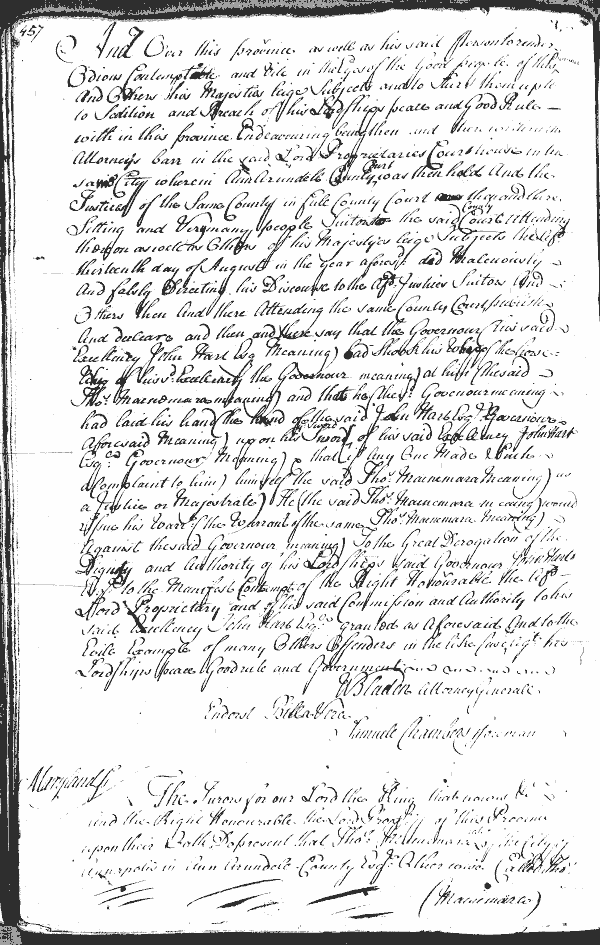 457
And Over this province as well as his said Person to render
Odious Contemptable and Vile in the Eyes of the Good people of this province
And Others his Majesties leige Subjects and to Stirr them up
to Sedition and Breach of his Lordships peace and Good Rule
with in this province Endeavouring being then and there
Attorneys barr in the said Lord Proprietaries Court house in the
same City where in Ann Arundele County Court was then held And the
Justices of the Same County in full County Court then and there
Sitting and Very many people Suitors to the said County Court attending
thereon as well as Others of his Majestyes leige Subjects the afsd
thirteenth day of August in the year aforesd did Maleciously
And falsly Directing his Discourse to the afd Justices Suitors And
Others then And there Attending the same County Court publish
And declare and then and there say that the Governour (his said
Excellency John Hart Esqr Meaning) had Shook his
of his sd Excellency the Governour meaning) at him (the said
Thos Macnemara meaning) and that he (the sd Governour meaning
had laid his hand the hand of the said John Hart Esqr Governour
Aforesaid Meaning) upon his Sword Sword of his said Excellency John Hart
Esqr Governour Meaning) that if any One Made Such
a Complaint to him) himself the said Thos Macnemara Meaning) as
a Justice or Majestrate) He (the said Thos Macnemara meaning) would
Issue his Warrt (the Warrant of the same Thos Macnemara Meaning)
Against the said Governour meaning) To the Great Derogation of the
Dignity and Authority of his Lordships said Governour John Hart
Esqr to the Manifest Contempt of the Right Honourable the afsd
Lord Proprietary and of his said Commission and Authority to his
said Excellency John Hart Esqr granted as Aforesaid And to the
Evile Example of many Others Offenders in the like Case agt his
Lordships peace Good rule and Government
WBladen Attorney Generale
Endorst Billa Vera
Samuele Chambers foreman
Maryland ss
The Jurors for our Lord the King that now is &c
And the Right Honourable the Lord Propry of this Province
upon their Oath Do present that Thos Macnemara late of the City of
Annapolis in Ann Arundele County Esqr Otherwise Called Thos
(Macnemara)